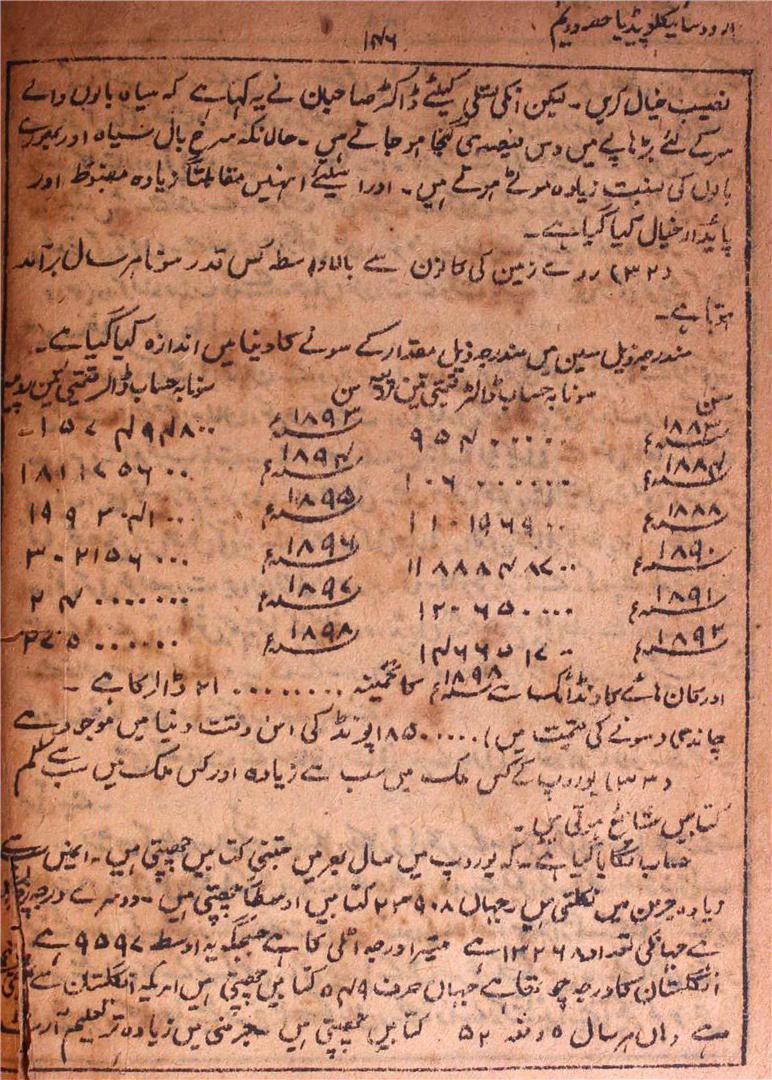 اردو سائیکلو پیڈیا حصہ دویم
۱۴۶
نصیب خیال کریں۔ لیکن انکی تسلی کیلئے ڈاکٹر صاحبان نے یہ کہا ہے کہ سیاہ بالوں والے
سر کے لئے بڑھاپے میں دس فیصدی گنجا ہو جاتے ہیں۔ حالانکہ سرخ بال سیاہ اور بھورے
بالوں کی بہ نسبت زیادہ موٹے ہوتے ہیں۔ اور اسلئے انہیں مقابلتاً زیادہ مضبوط اور
پائیدار خیال کیا گیا ہے۔
(۳۲) روے زمین کی کانوں سے بالاوسطہ کس قدر سونا ہر سال برآمد
ہوتا ہے۔
مندرجہ ذیل سین میں مندرجہ ذیل مقدار کے سونے کا دنیا میں اندازہ کیا گیا ہے۔
سن سونا بہ حساب ڈالر قیمتی تین روپیہ سن سونا بہ حساب ڈالر قیمتی تین روپیہ
۱۸۸۳ء ۹۵۴۰۰۰۰۰ ۱۸۹۳ء ۱۵۷۴۹۴۸۰۰
۱۸۸۷ء ۱۰۶۰۰۰۰۰۰ ۱۸۹۴ء ۱۸۱۱۷۵۶۰۰
۱۸۸۸ء ۱۱۰۱۹۶۹۰۰ ۱۸۹۵ء ۱۹۹۳۰۴۱۰۰
۱۸۹۰ء ۱۱۸۸۸۴۸۷۰۰ ۱۸۹۶ء ۲۰۲۱۵۶۰۰۰
۱۸۹۱ء ۱۲۰۶۵۰۰۰۰ ۱۸۹۷ء ۲۴۰۰۰۰۰۰۰
۱۸۹۲ء ۱۴۶۶۵۱۷۰۰ ۱۸۹۸ء ۲۷۵۰۰۰۰۰۰
اور کان ہائے کلونڈائک سے ۱۸۹۸ء کا تخمینہ ۲۱۰۰۰۰۰۰۰ ڈالر کا ہے۔
چاندی (سونے کی قیمت میں) ۸۵۰۰۰۰۰ پونڈ کی اس وقت دنیا میں موجود ہے
(۳۳) یوروپ کے کس ملک میں سب سے زیادہ اور کس ملک میں سب سے کم
کتابیں شائع ہوتی ہیں۔
حساب لگایا گیا ہے۔ کہ یوروپ میں سال بھر میں جتنی کتابیں چھپتی ہیں۔ انمیں سب سے
زیادہ جرمن میں نکلتی ہیں۔ جہاں ۲۳۹۰۸ کتابیں اوسطاً چھپتی ہیں۔ دوسرے درجہ پر
ہے جہانکی تعداد ۱۳۲۶۸ ہے تیسرا درجہ اٹلی کا ہے جسجگہ یہ اوسط ۹۵۹۷ ہے
انگلستان کا درجہ چوتھا ہے جہاں صرف ۵۴۹ کتابیں چھپتی ہیں امریکہ انگلستان سے
ہے وہاں ہر سال ۵۲ کتابیں چھپتی ہیں۔ جرمنی میں زیادہ تر تعلیم